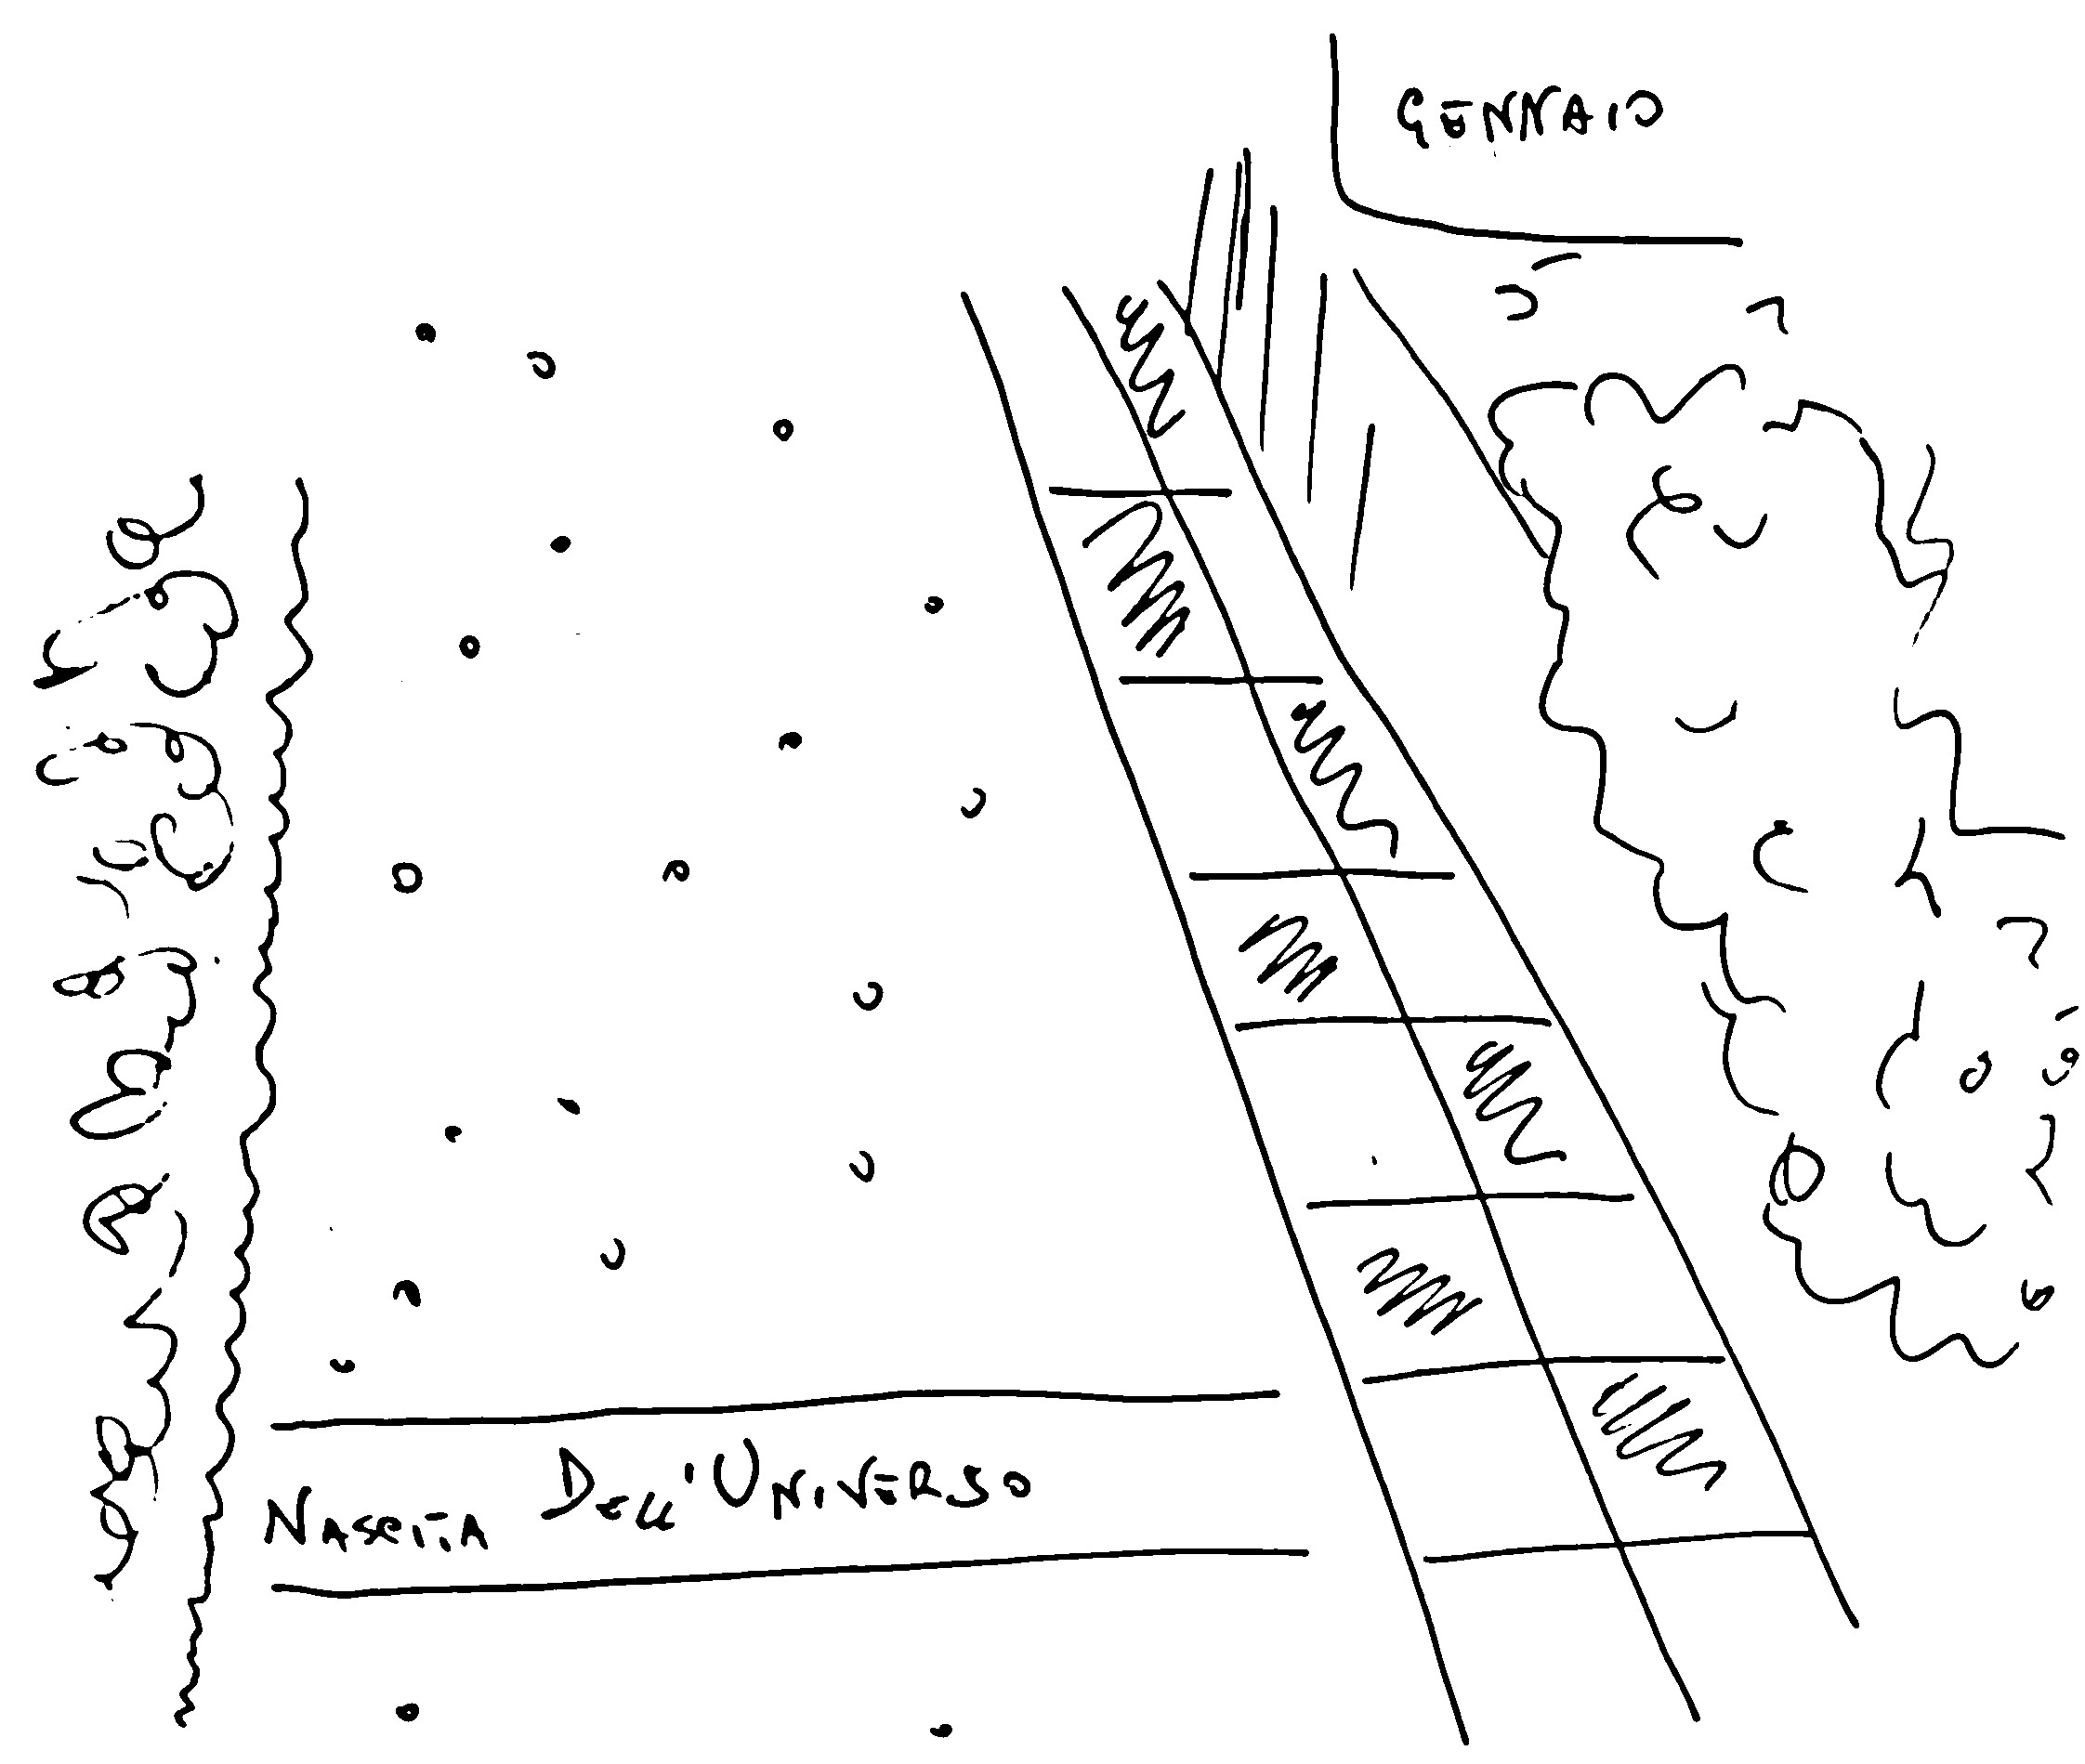 GENNAIO
NASCITA DELL'UNIVERSO